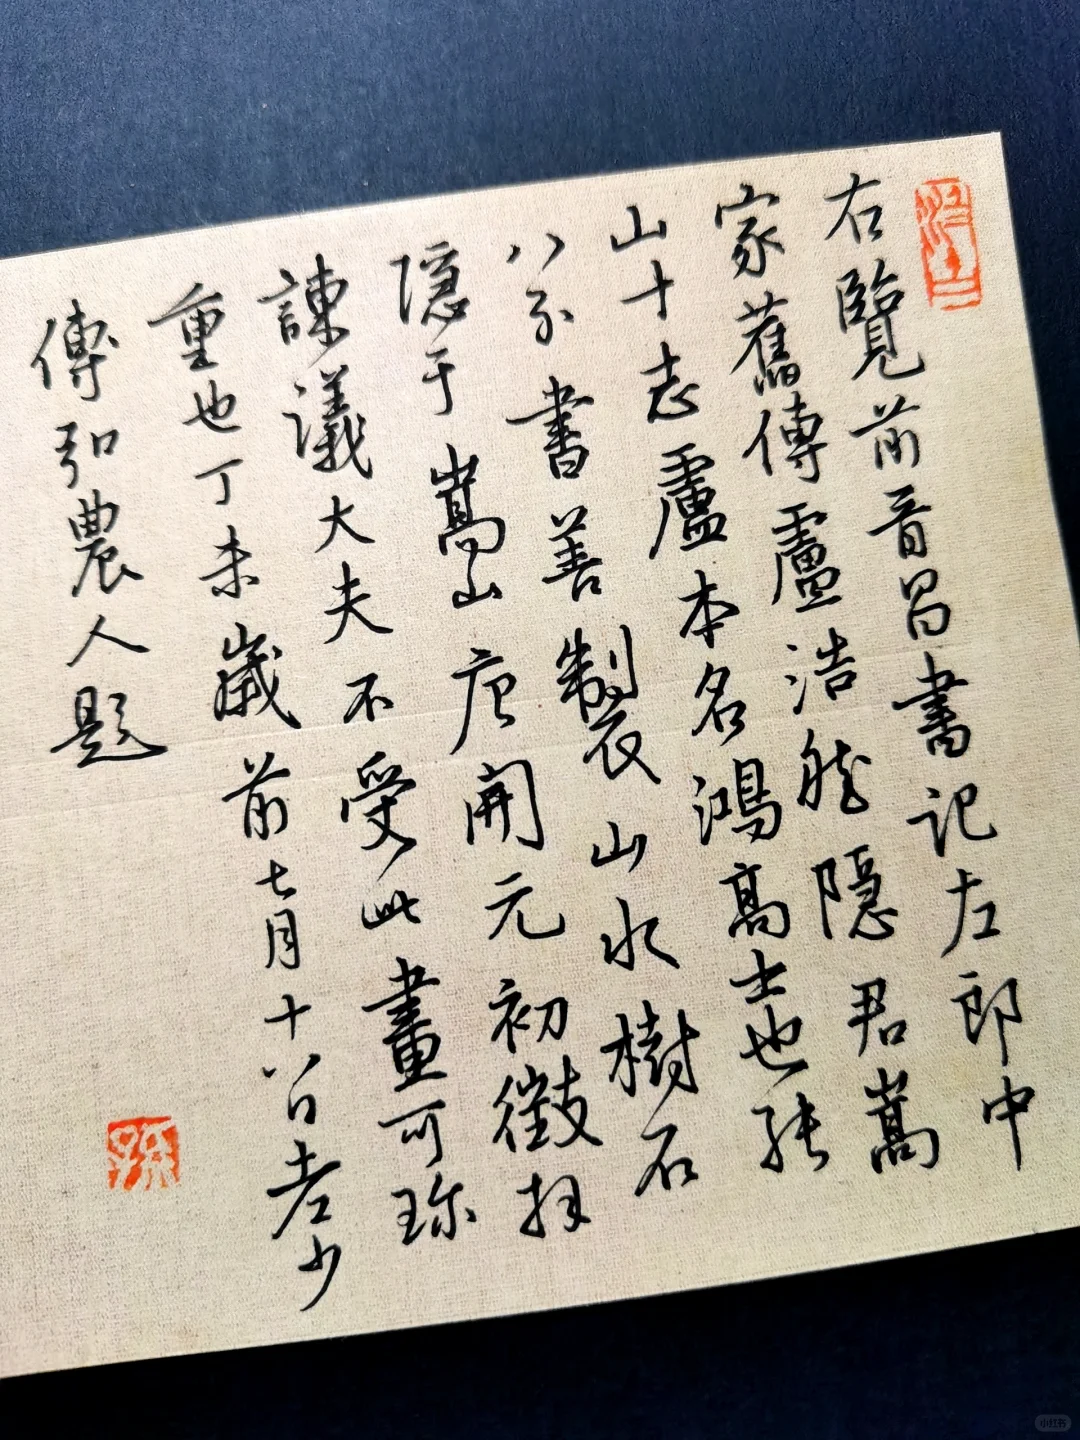 右覽前晋昌書記左郎中
家舊傳盧浩然隱君嵩
山十志盧本名鴻高士也能
八分書善製山水樹石
隱于嵩山唐開元初徵拜
諫議大夫不受此畫可珎
重也丁未歲前七月十八日老少
傅弘農人題
小红书